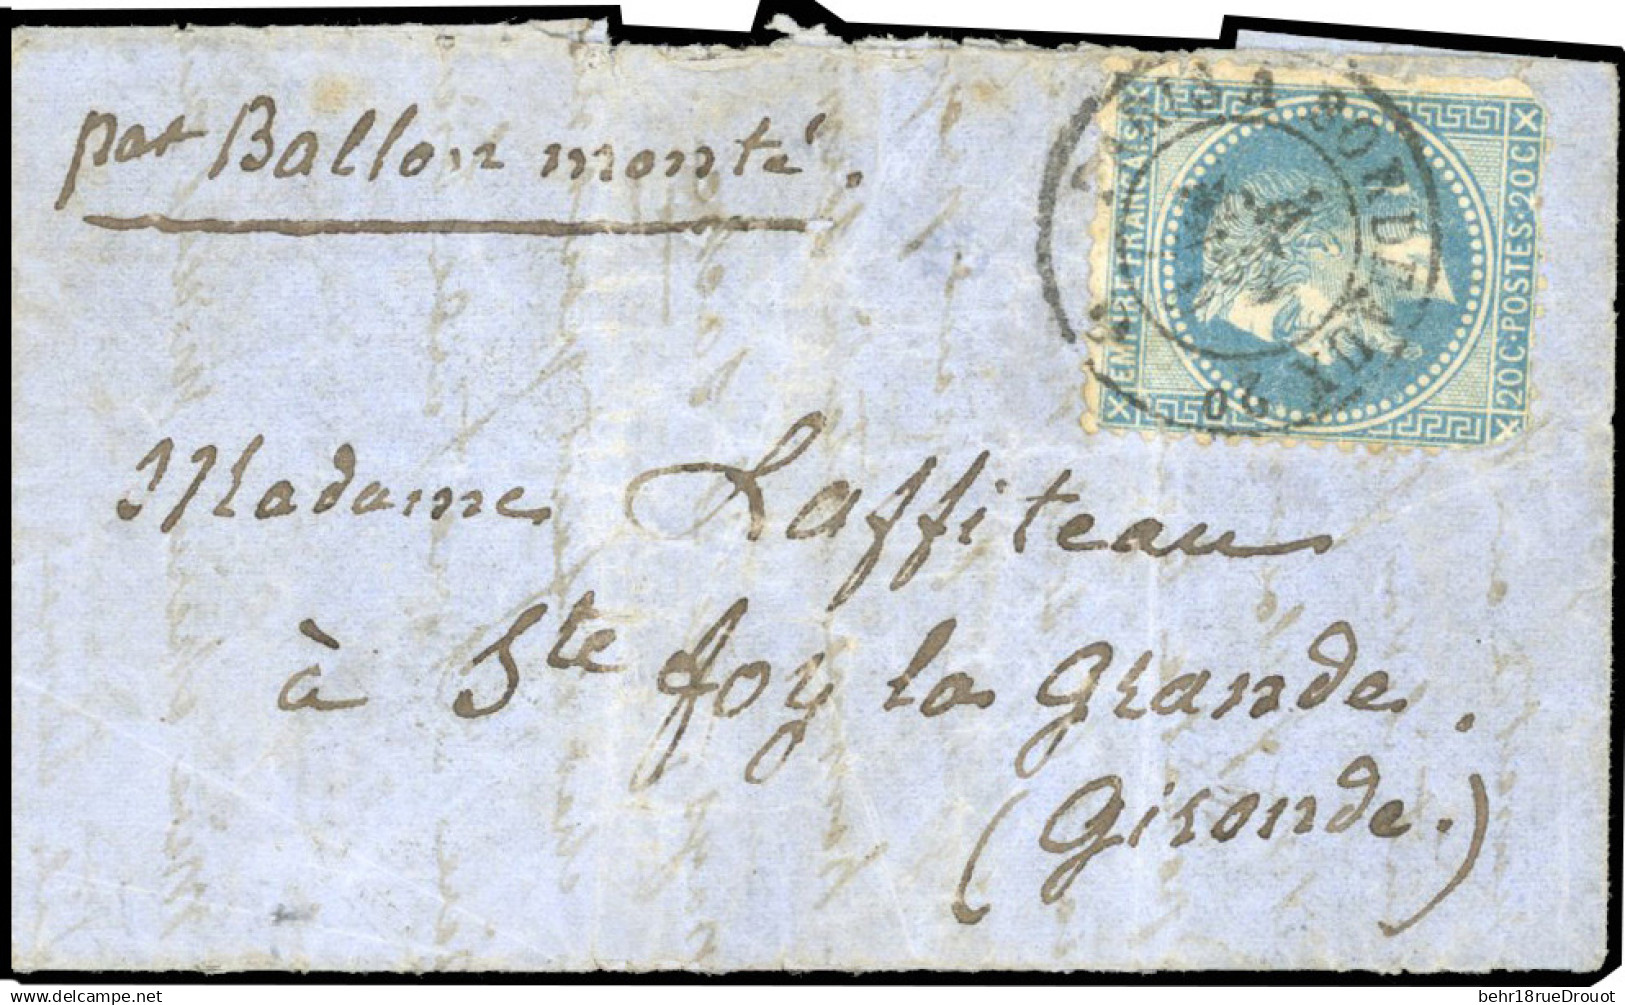 par Ballon monté.
EMPIRE FRANÇAIS
20C·POSTES·20C
PARIS A BORDEAUX
Madame Laffiteau
à Ste foy la Grande.
(Gironde.)
delcampe.net
behr18rueDrouot